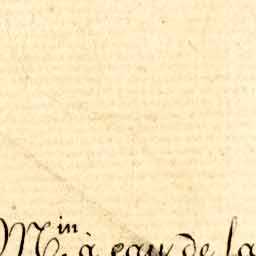 M.in à eau de la